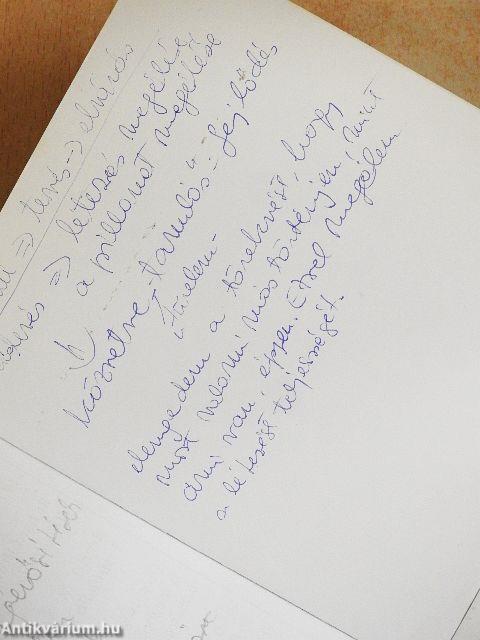 => terés -> elvárás
=> létezés megélése
a pillanat megélése
közvetve - tanulás - fejlődés
türelem -
elengedem a törekvést, hogy
most valami más történjen, mint
ami van, éppen. Ezzel megélem
a létezést teljességét.
Antikvárium.hu